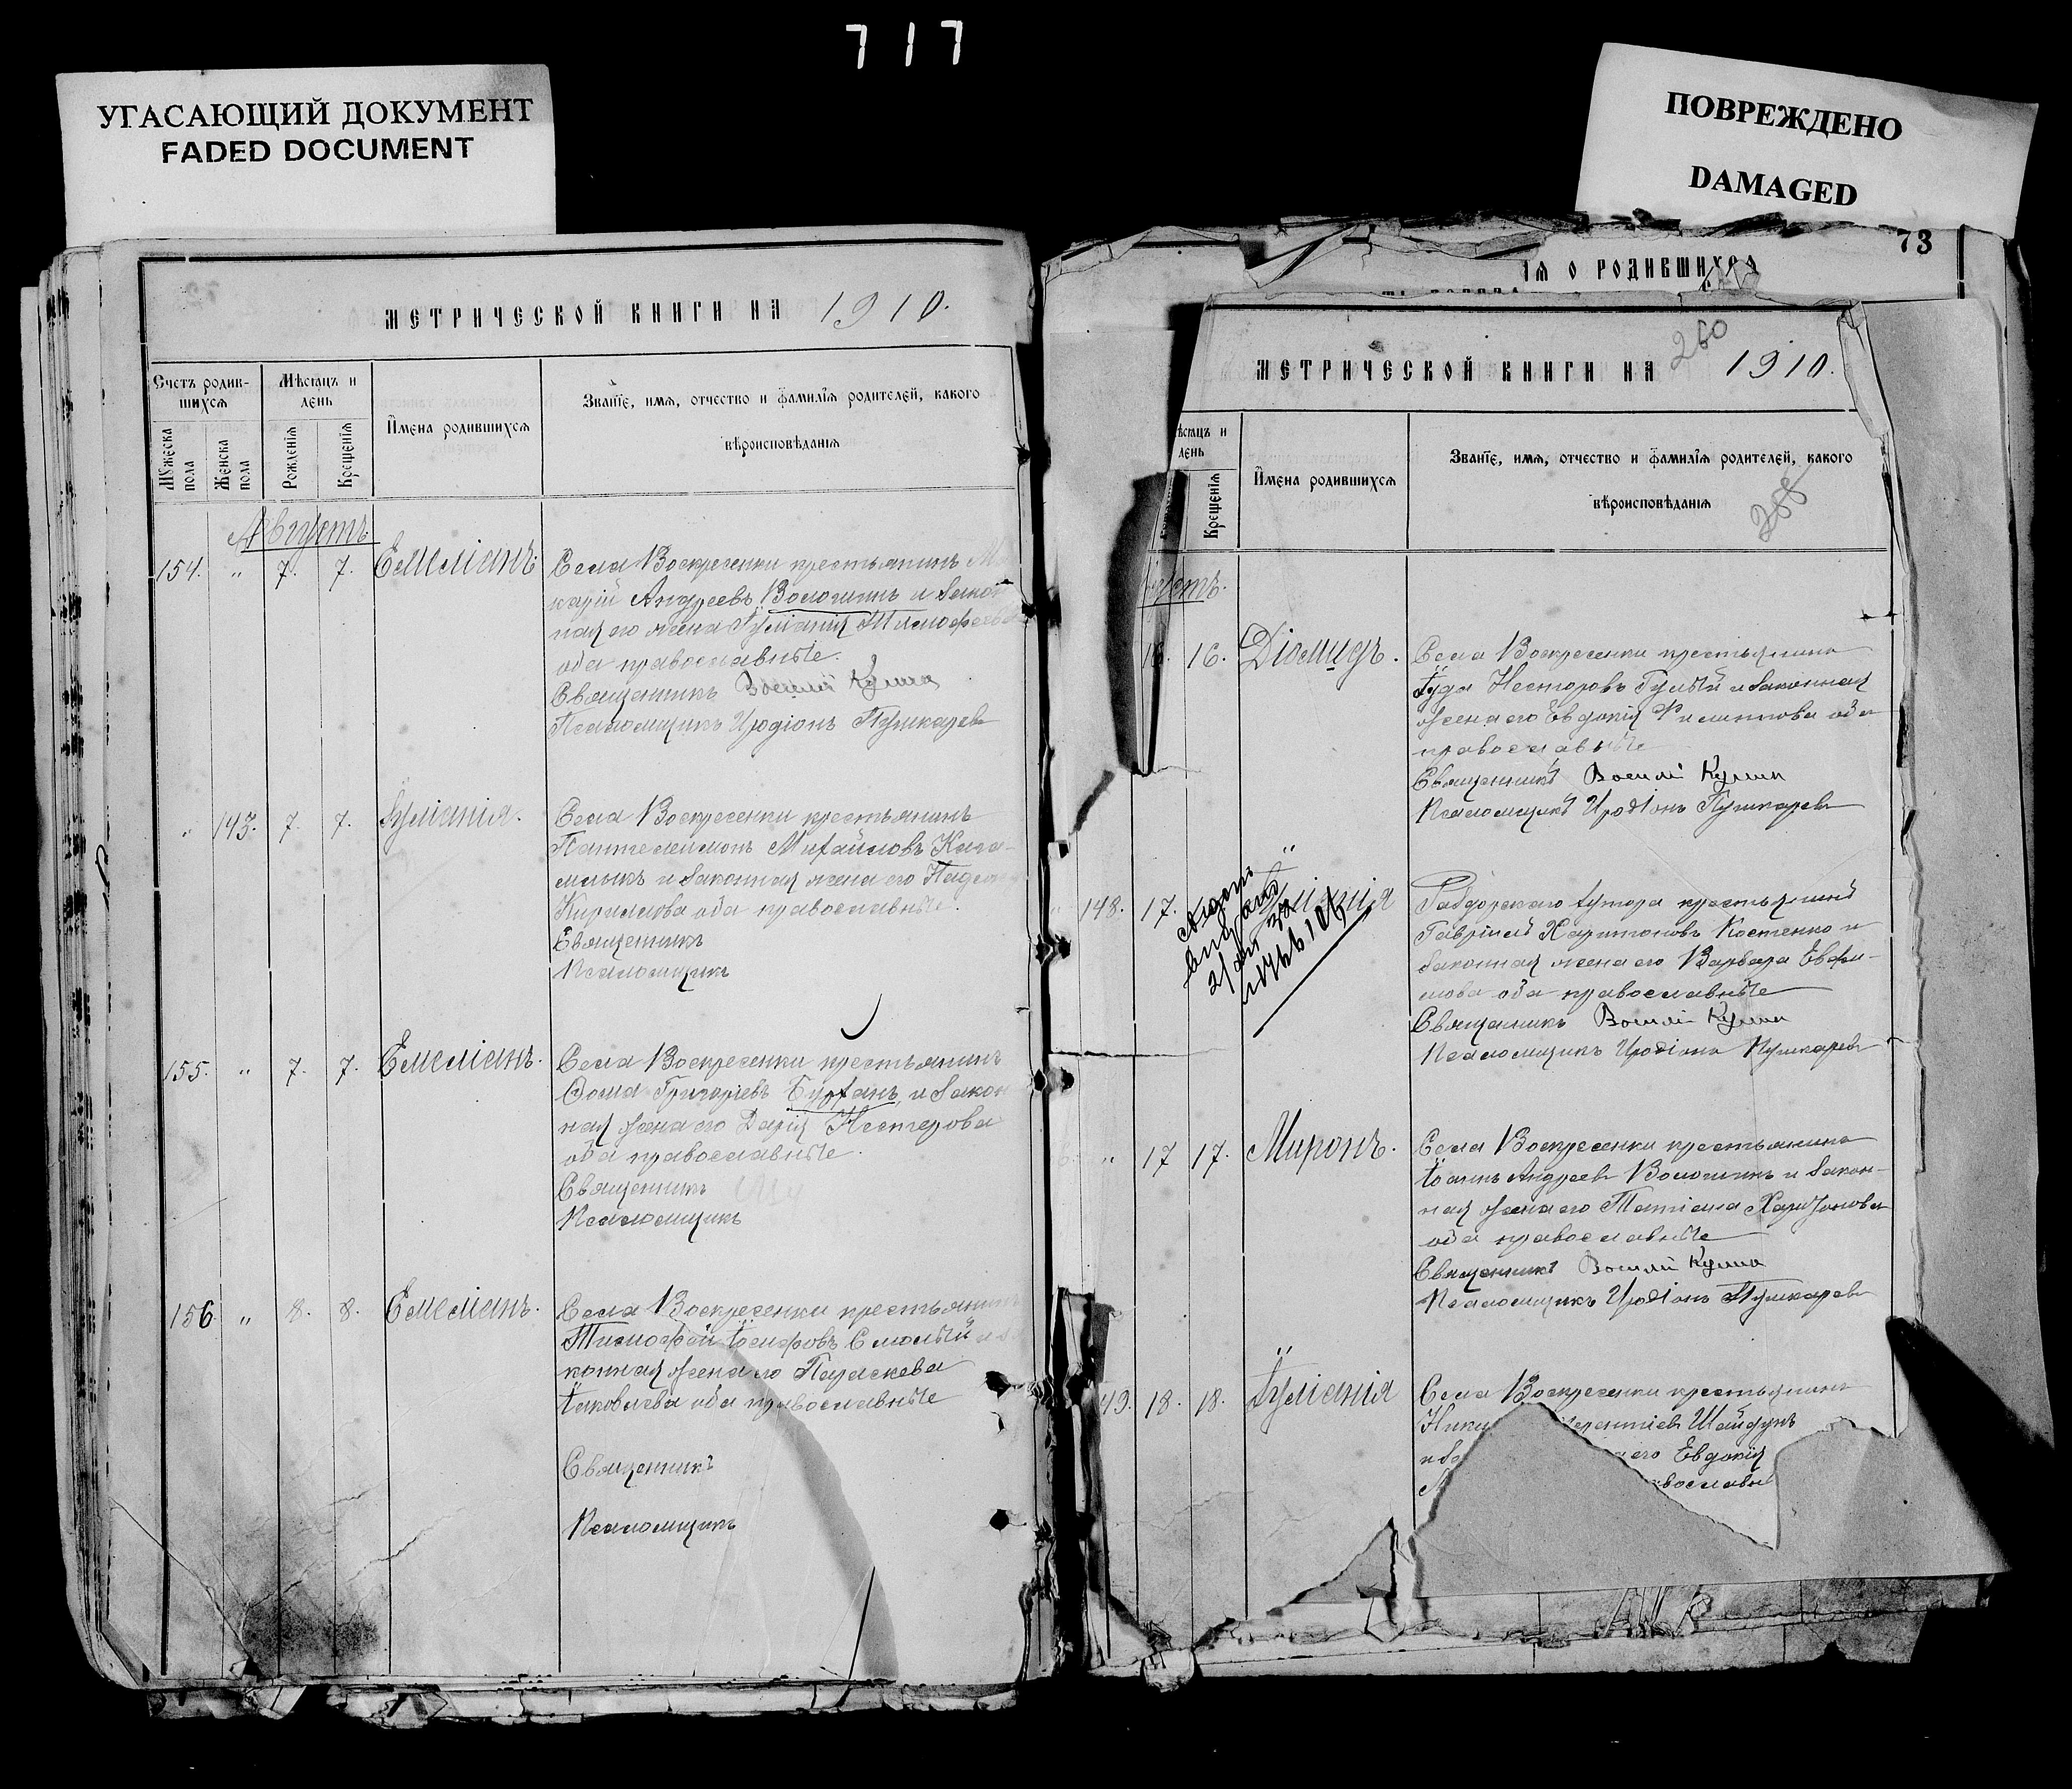 717
УГАСАЮЩИЙ ДОКУМЕНТ
FADED DOCUMENT
ПОВРЕЖДЕНО
DAMAGED
МЕТРИЧЕСКОЙ КНИГИ НА 1910.
Счетъ родив-
шихся
Мѣсяцъ и
день
Мужеска
пола
Женска
пола
Рожденія
Крещенія
Имена родившихся
Званіе, имя, отчество и фамилія родителей, какого
вѣроисповѣданія
Августъ
154. " 7. 7. Емеліанъ.
Села Воскресенки крестьянинъ
карій Андреевъ Вологинъ и закон
ная его жена Іуліанія Тимофеева
оба православные.
Священникъ Василій Кулик
Псаломщикъ Иродіонъ Пушкарев
" 143. 7. 7. Іуліанія.
Села Воскресенки крестьянинъ
Пантелеимонъ Михайловъ
и законная жена его
Кирилова оба православные.
Священникъ
Псаломщикъ
155. " 7. 7. Емеліанъ.
Села Воскресенки крестьянинъ
Фома Григоріевъ Бурханъ, и закон
ная жена его Дарія Нестерова
оба православные.
Священникъ
Псаломщикъ
156 " 8. 8. Емеліанъ.
Села Воскресенки крестьянинъ
Тимофей Іосифовъ
конная жена его Параскева
Іаковлева оба православные
Священникъ
Псаломщикъ
73
ІЯ О РОДИВШИХСЯ
260
МЕТРИЧЕСКОЙ КНИГИ НА 1910.
ѣсяцъ и
день
Крещенія
Имена родившихся
Званіе, имя, отчество и фамилія родителей, какого
вѣроисповѣданія
густъ.
16. 16. Діомидъ.
Села Воскресенки крестьянинъ
Іуда Несторовъ Гулый и законная
жена его Евдокія Филиппова оба
православные
Священникъ Василій Кулик
Псаломщикъ Иродіонъ Пушкарев
148. 17. Іуліанія
хутора крестьянинъ
Гавріилъ Харитоновъ Костенко и
законная жена его Варвара Евфи-
мова оба православные
Священникъ Василій Кулик
Псаломщикъ Иродіонъ Пушкарев
" 17 17. Миронъ.
Села Воскресенки крестьянинъ
Іоаннъ Андреевъ Вологинъ и закон-
ная жена его Татіана Харитонова
оба православные
Священникъ Василій Кулик
Псаломщикъ Иродіонъ Пушкарев
49. 18. 18. Іуліанія
Села Воскресенки крестьянинъ
его Евдокія
вославны